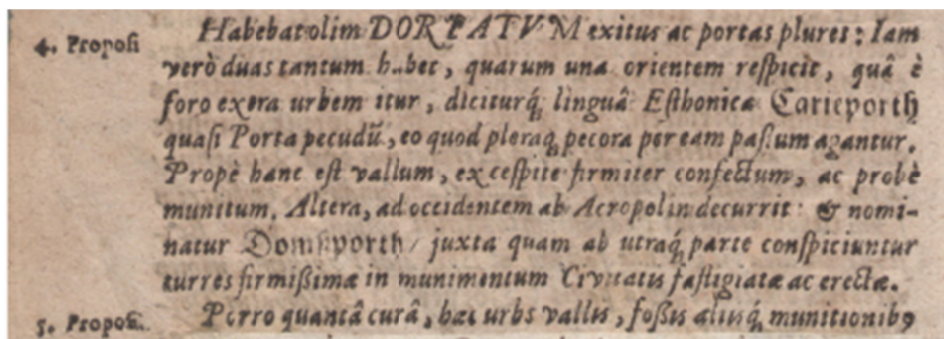 4. Proposi
Habebat olim DORPATVM exitus ac portas plures: Iam
verò duas tantum habet, quarum una orientem respicit, quâ è
foro extra urbem itur, diciturq́ linguâ Esthonica Carieporth
quasi Porta pecudũ, eo quod pleraq́ pecora per eam pastum agantur.
Propè hanc est vallum, ex cespite firmiter confectum, ac probè
munitum. Altera, ad occidentem ab Acropolin decurrit: & nomi-
natur Domsporth/ juxta quam ab utraq́ parte conspiciuntur
turres firmißimæ in munimentum Civitatis fastigiatæ ac erectæ.
5. Proposi.
Porro quantâ curâ, hæc urbs vallis, foßis aliisq́ munitionibꝰ